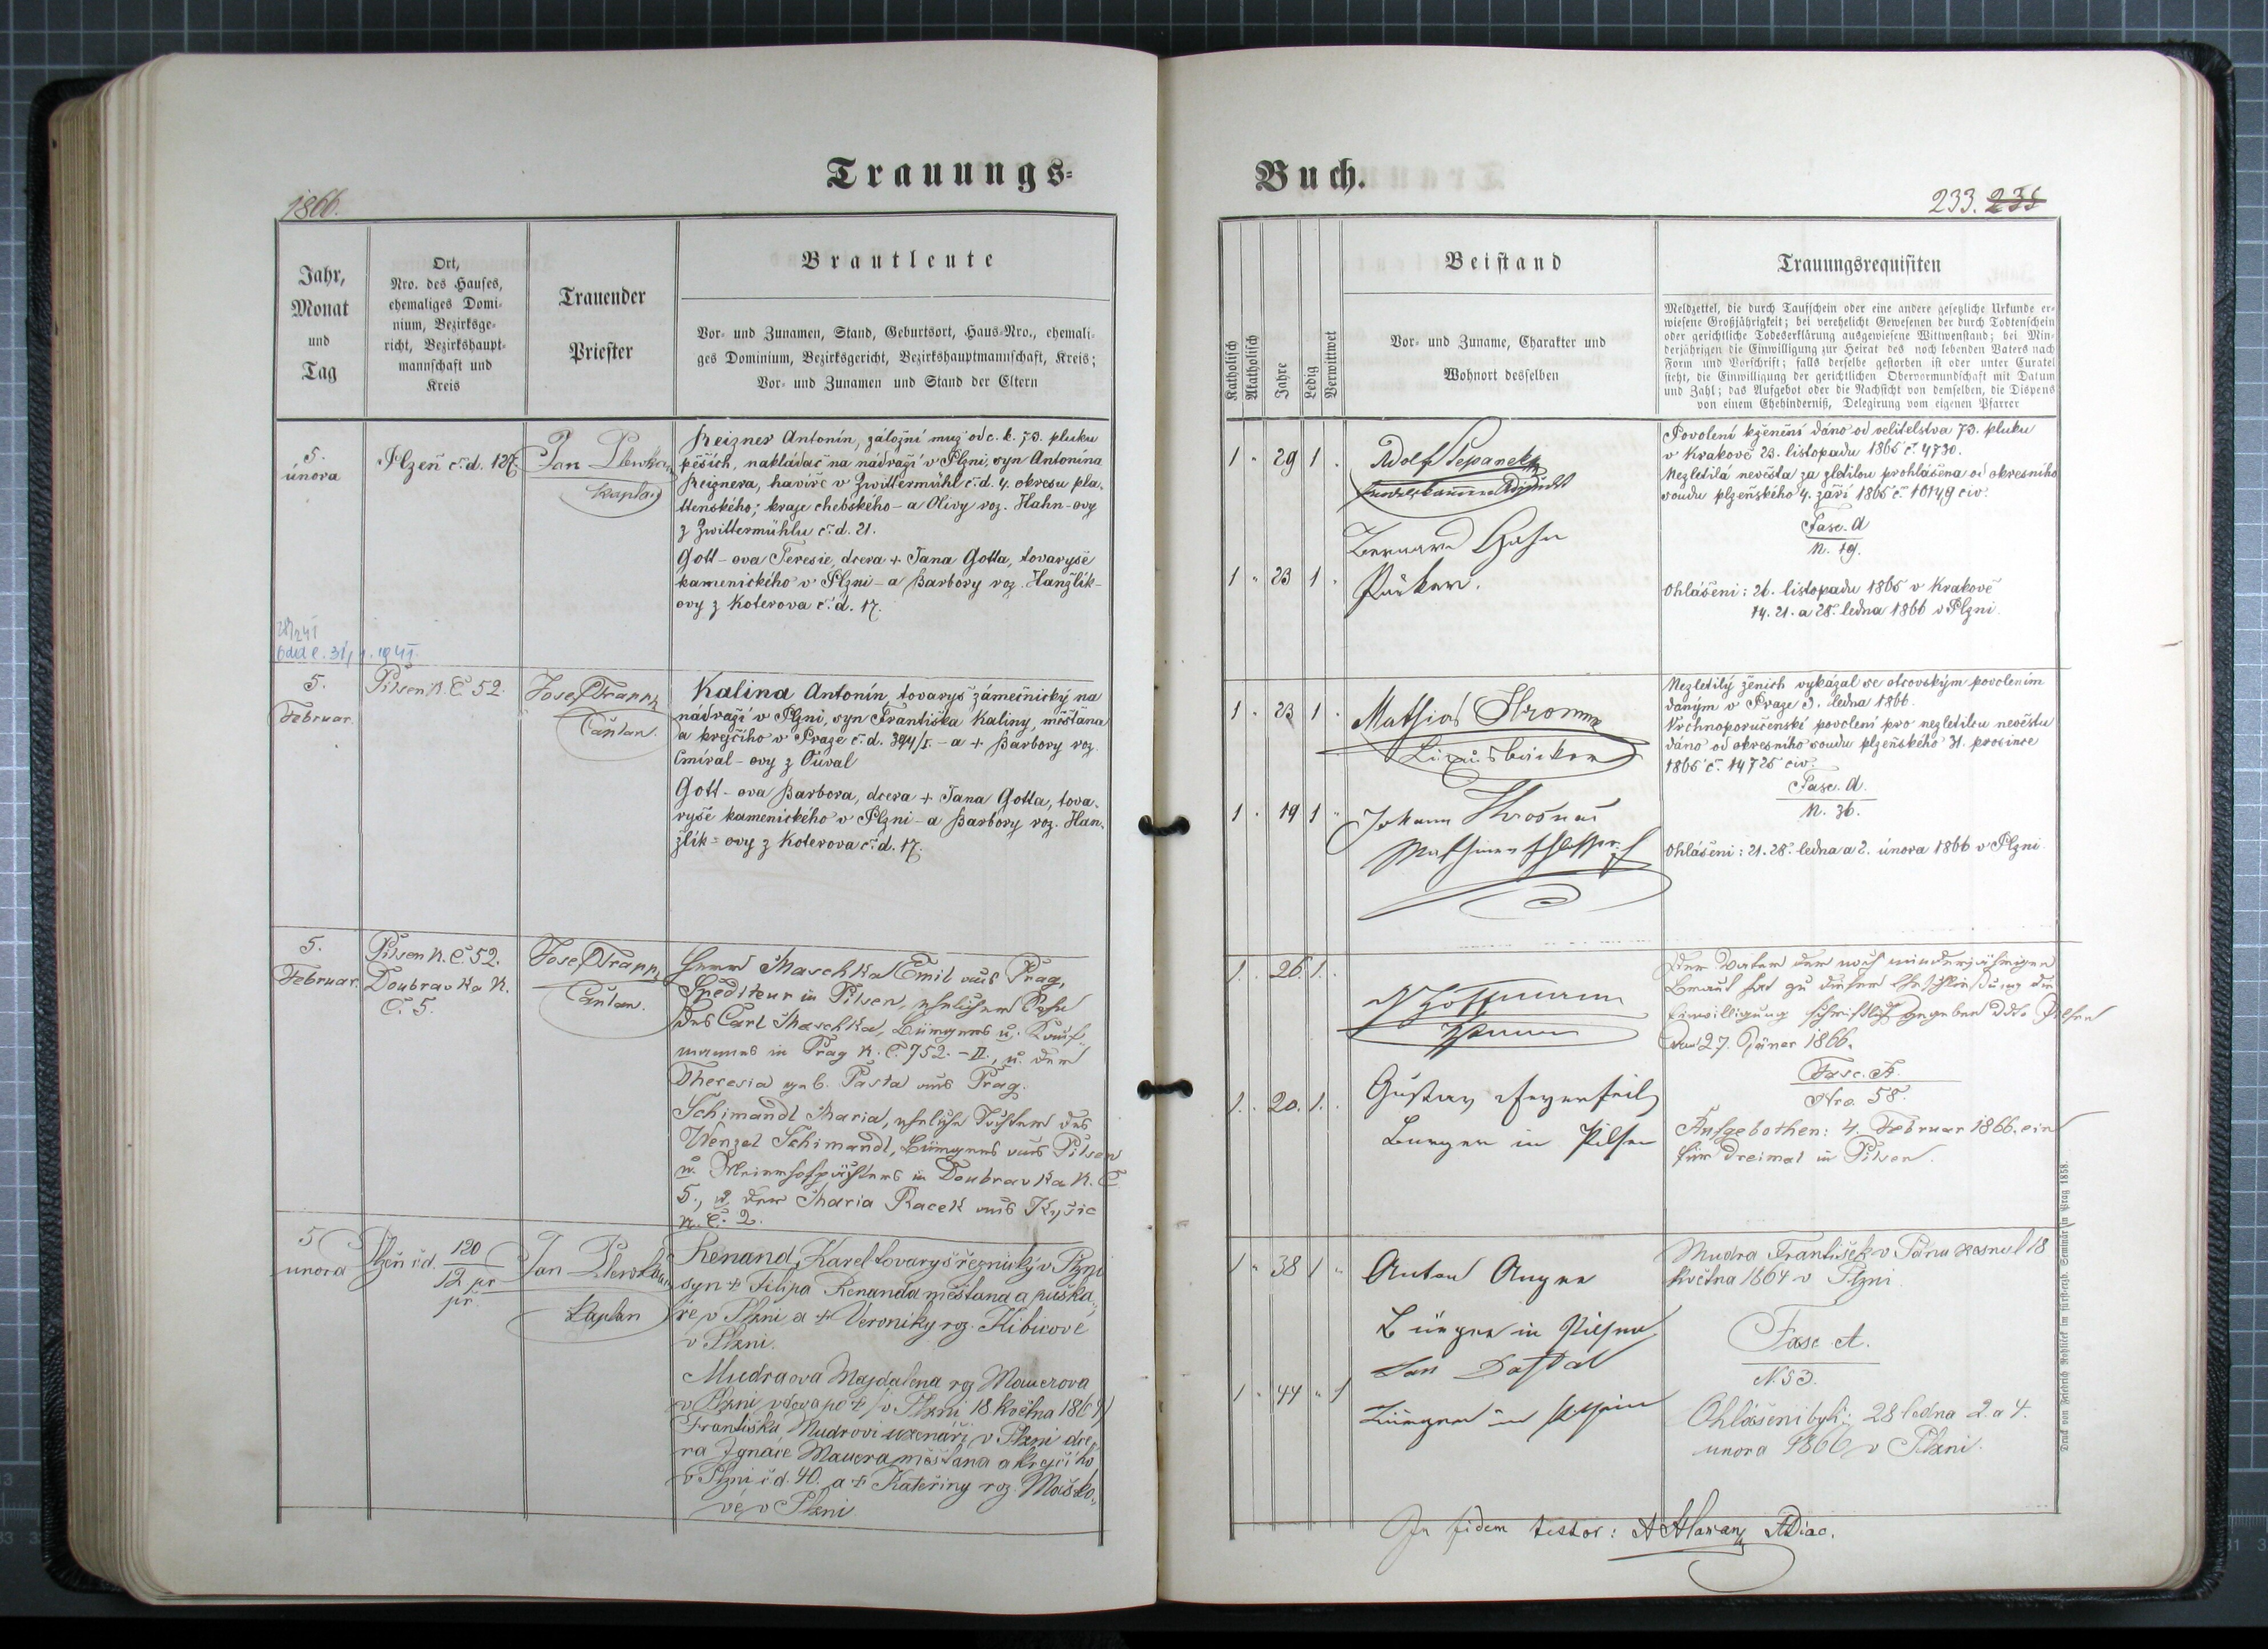 Trauungs-
1866.
Jahr,
Monat
und
Tag
Ort,
Nro. des Hauses,
ehemaliges Domi-
nium, Bezirksge-
richt, Bezirkshaupt-
mannschaft und
Kreis
Trauender
Priester
Brautleute
Vor- und Zunamen, Stand, Geburtsort, Haus-Nro., ehemali-
ges Dominium, Bezirksgericht, Bezirkshauptmannschaft, Kreis;
Vor- und Zunamen und Stand der Eltern
5.
února
Plzeň č. d. 127.
Jan
kaplan
Reizner Antonín, záložní muž od c. k. 73. pluku
pěších, nakládač na nádraží v Plzni, syn Antonína
Reiznera, havíře v Zwittermühl č. d. 4. okresu pla-
ttenského; kraje chebského - a Olivy roz. Hahn-ovy
z Zwittermühlu č. d. 21.
Gott-ova Teresie, dcera + Jana Gotta, tovaryše
kamenického v Plzni - a Barbory roz. Hanžlík-
ovy z Koterova č. d. 17.
5.
Februar.
Pilsen N. C. 52.
Josef Trapp
Caplan.
Kalina Antonín, tovaryš zámečnický na
nádraží v Plzni, syn Františka Kaliny, měšťana
a krejčího v Praze č. d. 394/I. - a + Barbory roz.
Cmíral-ovy z Ouval
Gott-ova Barbora, dcera + Jana Gotta, tova-
ryše kamenického v Plzni - a Barbory roz. Han-
žlík-ovy z Koterova č. d. 17.
5.
Februar.
Pilsen N. C. 52.
Doubravka N.
C. 5.
Josef Trapp
Caplan.
Herr Maschka Emil aus Prag,
Spediteur in Pilsen, ehelicher Sohn
des Carl Maschka, Bürgers u. Kauf-
mannes in Prag N. C. 752.-II., u. der
Theresia geb. Pasta aus Prag.
Schimandl Maria, eheliche Tochter des
Wenzel Schimandl, Bürgers aus Pilsen
u. Meierhofpächters in Doubravka N. C.
5., u. der Maria Racek aus Kyšic
N. C. 2.
5
unora
Plzeň č d. 120
12 pr
př.
Jan
Kaplan
Renand, Karel tovaryš řeznický v Plzni
syn + Filipa Renanda měštana a puška-
ře v Plzni a + Veroniky roz. Kibicové
v Plzni.
Mudraova Majdalena roz Mauerova
v Plzni vdova po + (v Plzni 18 května 1864)
Františku Mudrovi uzenáři v Plzni dce-
ra Ignáce Mauera měštana a krejčího
v Plzni č d. 40. a + Kateřiny roz. Maško-
vé v Plzni
Buch.
233. 235
Katholisch
Akatholisch
Jahre
Ledig
Verwittwet
Beistand
Vor- und Zuname, Charakter und
Wohnort desselben
Trauungsrequisiten
Meldzettel, die durch Taufschein oder eine andere gesetzliche Urkunde er-
wiesene Großjährigkeit; bei verehelicht Gewesenen der durch Todtenschein
oder gerichtliche Todeserklärung ausgewiesene Wittwenstand; bei Min-
derjährigen die Einwilligung zur Heirat des noch lebenden Vaters nach
Form und Vorschrift; falls derselbe gestorben ist oder unter Curatel
steht, die Einwilligung der gerichtlichen Obervormundschaft mit Datum
und Zahl; das Aufgebot oder die Nachsicht von demselben, die Dispens
von einem Ehehinderniß, Delegirung vom eigenen Pfarrer
1 " 29 1 .
Adolf Sepanek
Bernard Hahn
1 " 23 1 "
Povolení k ženění dáno od velitelstva 73. pluku
v Krakově 23. listopadu 1865 č. 4730.
Nezletilá nevěsta za zletilou prohlášena od okresního
soudu plzeňského 4. září 1865 č. 10149 civ.
Fasc. A
N. 19.
Ohlášeni: 26. listopadu 1865 v Krakově
14. 21. a 28. ledna 1866 v Plzni.
1 . 23 1 "
Mathias
1 . 19 1 "
Johann
Nezletilý ženich vykázal se otcovským povolením
daným v Praze 3. ledna 1866.
Vrchnoporučenské povolení pro nezletilou nevěstu
dáno od okresního soudu plzeňského 31. prosince
1865 č. 14725 civ.
Fasc. A.
N. 36.
Ohlášeni: 21. 28. ledna a 2. února 1866 v Plzni.
1. . 26. 1. .
Hoffmann
1. . 20. 1. .
Gustav
Burger in Pilsen
Der Vater der noch minderjährigen
Braut hat zu dieser Eheschließung die
Einwilligung schriftlich gegeben ddto. Pilsen
den 27. Jäner 1866.
Fasc. A.
Nro. 58.
Aufgebothen: 4. Februar 1866. ein
für dreimal in Pilsen.
1 " 38 1 "
Anton Anger
Bürger in Pilsen
Jan Dostal
1 " 44 " 1
Bürger in Pilsen
Mudra František v Pánu zesnul 18
května 1864 v Plzni
Fasc A.
N. 53.
Ohlášeni byli: 28 ledna 2. a 4.
unora 1866 v Plzni.
In fidem testor:
Druck von Friedrich Rohliček im fürst-erzb. Seminär in Prag 1858.